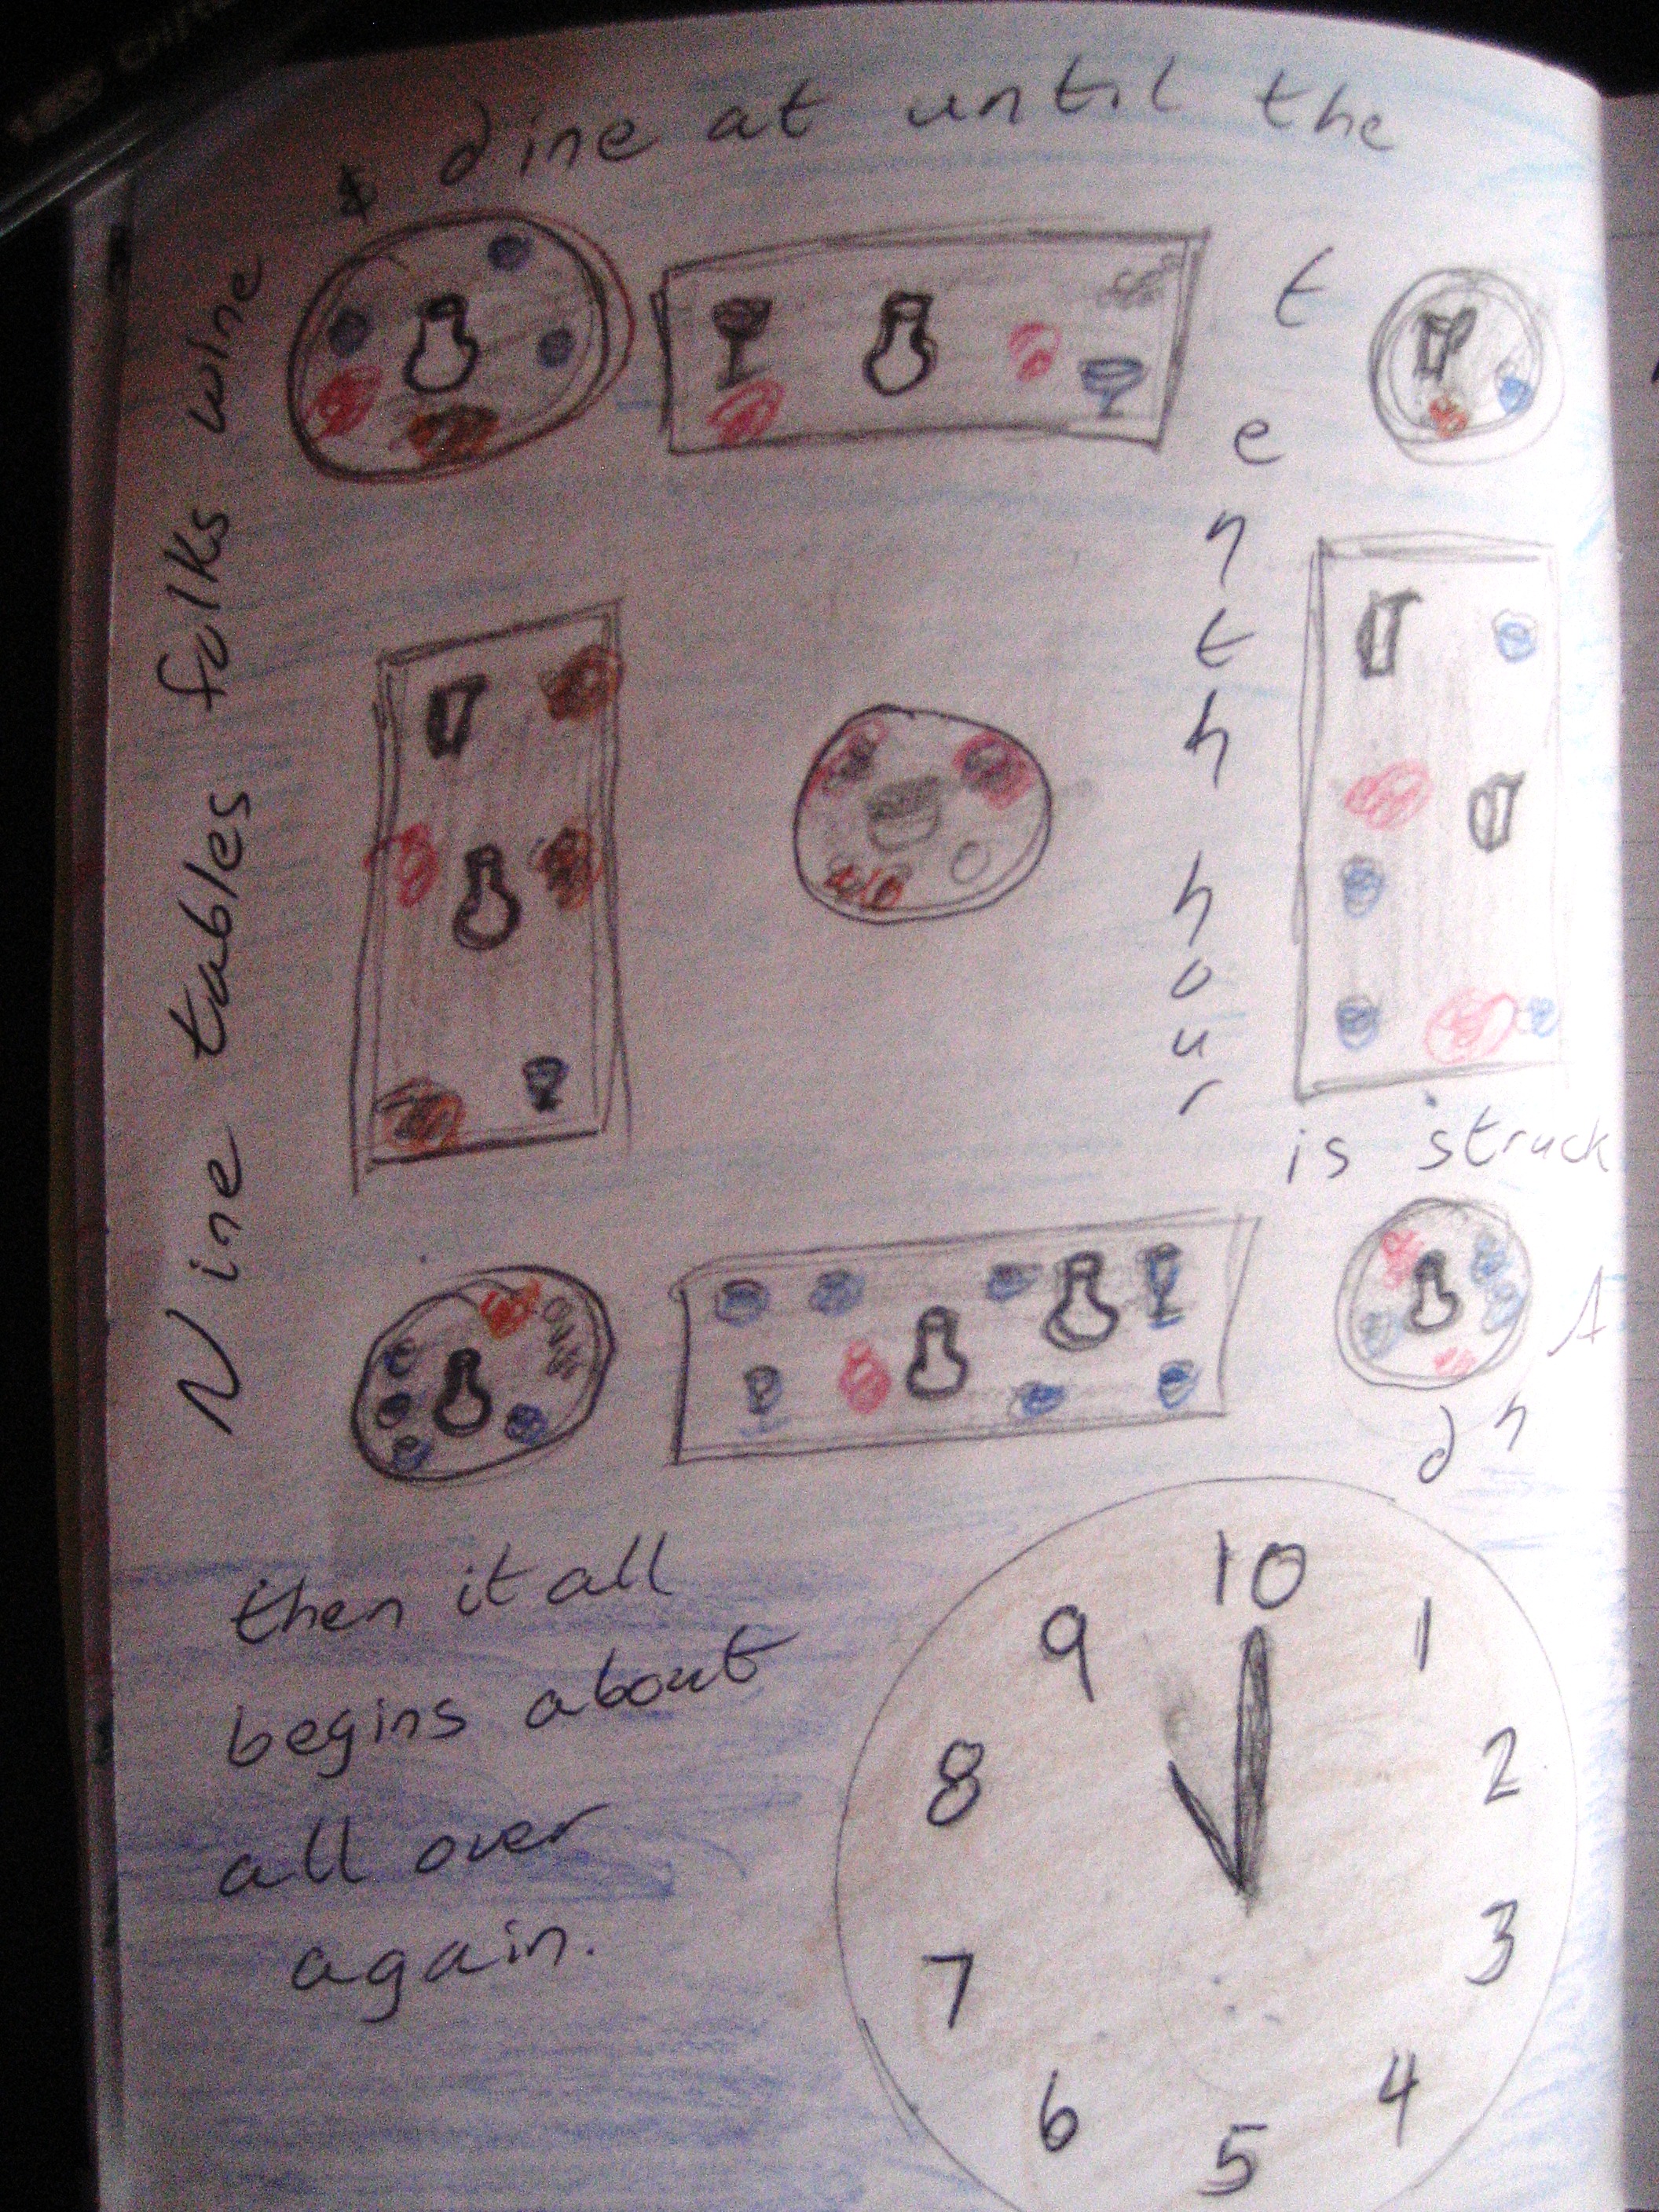 Nine tables folks wine
& dine at until the
tenth hour
is struck
And
then it all
begins about
all over
again.
10
1
2
3
4
5
6
7
8
9